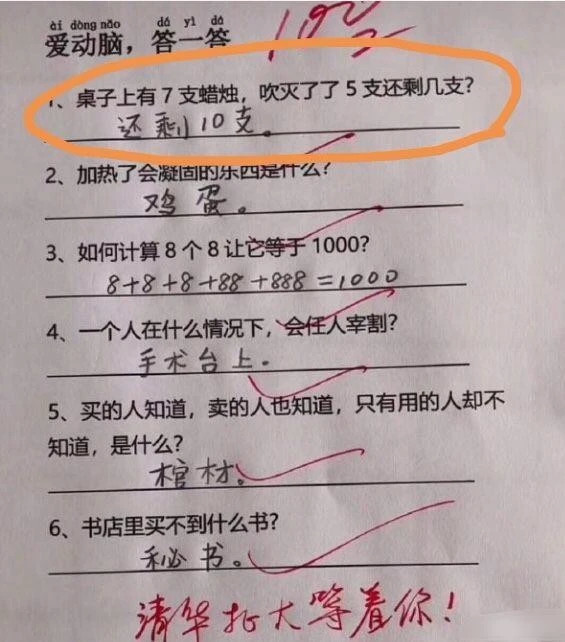 ài dòng nǎo dá yì dá
爱动脑，答一答
1、桌子上有 7 支蜡烛，吹灭了了 5 支还剩几支？
还剩10支。
2、加热了会凝固的东西是什么？
鸡蛋。
3、如何计算 8 个 8 让它等于 1000？
8+8+8+88+888=1000
4、一个人在什么情况下，会任人宰割？
手术台上.
5、买的人知道，卖的人也知道，只有用的人却不
知道，是什么？
棺材。
6、书店里买不到什么书？
秘书。
清华北大等着你！